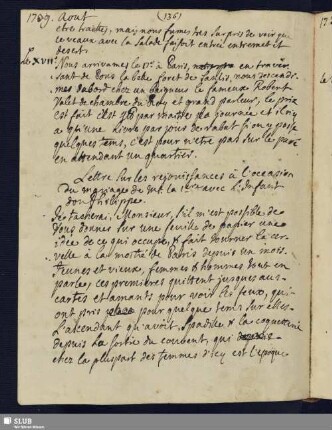 1739. Aout (136)
etre traittés, mais nous fumes tres surpris de voir que
ce veaux avec la Salade faisoit entrée entremet et
desert.
Le XVII.e Nous arrivames le 17.e à Paris, en traver
sant de bois la belle foret de Senlis, nous descend
mes dabord chez un baigneur le fameux Robert
Valet de chambre du Roy et grand parleur, le prix
est fait c'est par maitre la journée et il n'y
a qu'une Livre par jour de rabat si on y passe
quelques tems, c'est pour n'etre pas sur le pavé
en attendant un quartier.
Lettre sur les rejouissances à l'occasion
du mariage de avec L'Infant
don Philippe.
Je tacherai, Monsieur, s'il m'est possible de
vous donner sur une feuille de papier une
idée de ce qui occupe, & fait tourner la cer-
velle à la moitié de Paris depuis un mois.
Jeunes et vieux, femmes & hommes tout en
parle, ces premieres quittent jusques aux
cartes et amants pour voir les feux, qui
ont pris place pour quelque tems sur elles
L'ascendant qu'avoit spadille & la coquetterie
depuis la sortie du couvent, qui
chez la pluspart des femmes d'icy est l'epoque
SLUB